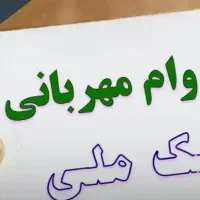 وام مهربانی
ملی